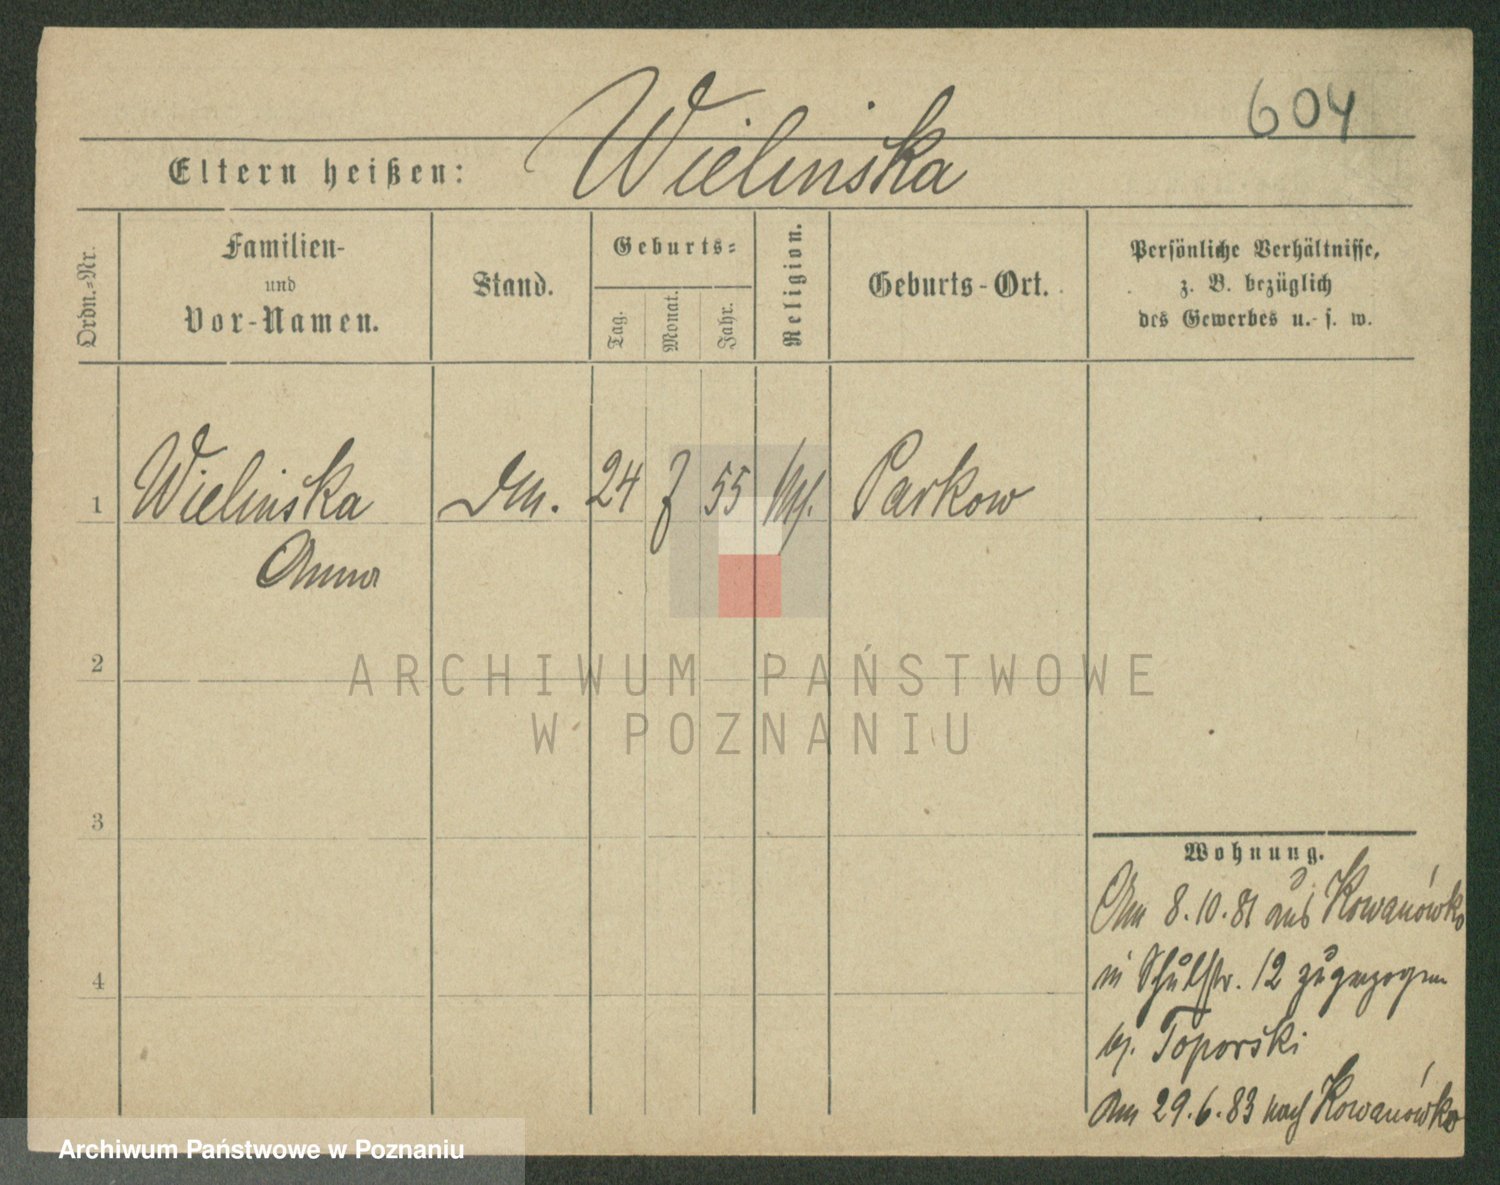 604
Wielinska
Eltern heißen:
Ordn.-Nr.
Familien-
und
Vor-Namen.
Stand.
Geburts-
Tag.
Monat.
Jahr.
Religion.
Geburts-Ort.
Persönliche Verhältnisse,
z. B. bezüglich
des Gewerbes u. s. w.
1 Wielinska 24 55 Parkow
Anna
2
ARCHIWUM PAŃSTWOWE
W POZNANIU
3
4
Wohnung.
Am 8.10.81 aus Kowanówko
in Schulstr. 12 zugezogen
Toporski
Am 29.6.83 nach Kowanówko
Archiwum Państwowe w Poznaniu